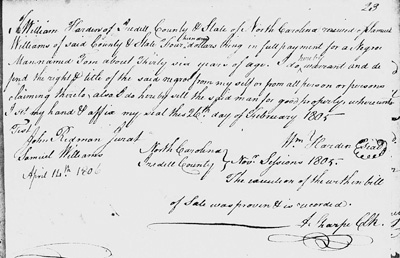 23
I William Harden of Iredell County & State of North Carolina received of Samuel
Williams of said County & State Four hundred dollars being in full payment for a Negroe
Man named Tom about Thirty six years of age. I do hereby warrant and de
fend the right & title of the said negroe from my self or from all person or persons
claiming thereto, also I do hereby sell the said man for good property, whereunto
I set my hand & affix my seal this 26th day of February 1805
Test
John Redman Jurat
Wm Harden (Seal)
Samuel Williams
April 14th 180
North Carolina
Iredell County
Novr Sessions 1805
The execution of the within bill
of Sale was proven & is recorded.
A Sharpe Clk.